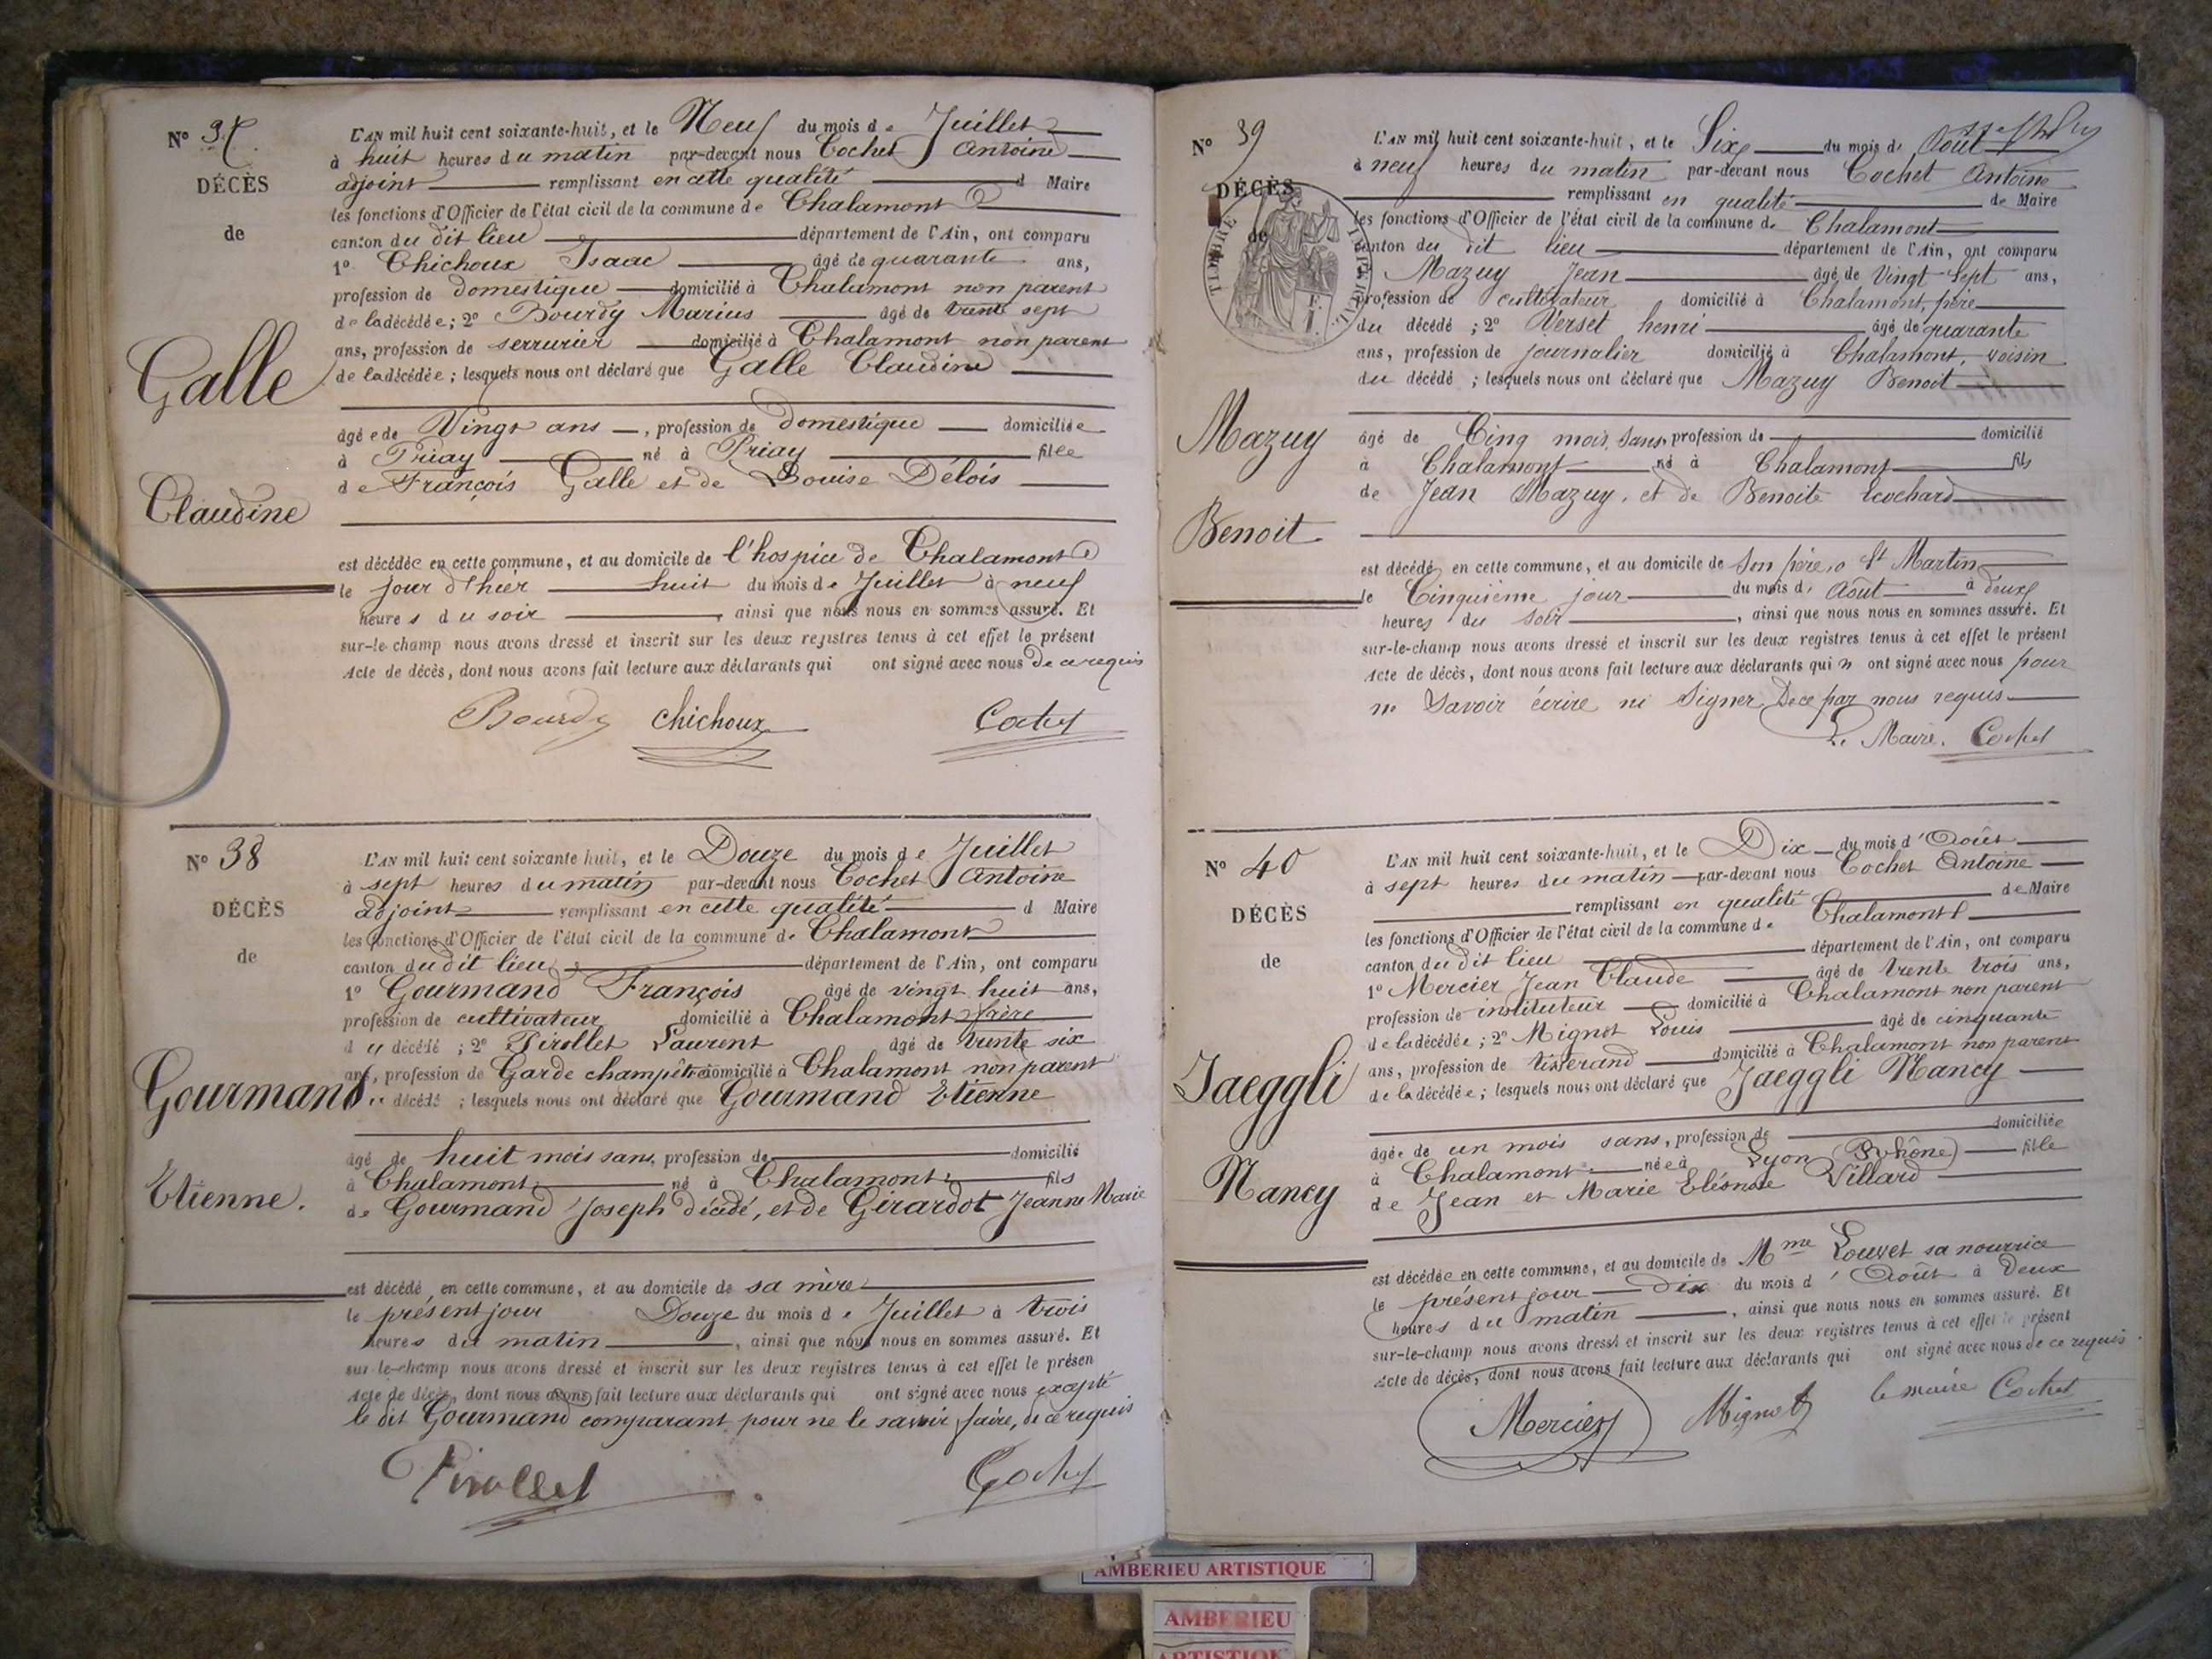 Nº 37.
DÉCÈS
de
Galle
Claudine
L'AN mil huit cent soixante-huit, et le Neuf du mois de Juillet
à huit heures du matin par-devant nous Cochet Antoine
adjoint remplissant en cette qualité d Maire
les fonctions d'Officier de l'état civil de la commune de Chalamont
canton du dit lieu département de l'Ain, ont comparu
1º Chichoux Isaac âgé de quarante ans,
profession de domestique domicilié à Chalamont non parent
de la décédée; 2º Bourdy Marius âgé de trente sept
ans, profession de serrurier domicilié à Chalamont non parent
de la décédée; lesquels nous ont déclaré que Galle Claudine
âgée de Vingt ans, profession de domestique domiciliée
à Priay né à Priay fille
de François Galle et de Louise Délois
est décédée en cette commune, et au domicile de l'hospice de Chalamont
le jour d'hier huit du mois de Juillet à neuf
heures du soir, ainsi que nous nous en sommes assuré. Et
sur-le-champ nous avons dressé et inscrit sur les deux registres tenus à cet effet le présent
Acte de décès, dont nous avons fait lecture aux déclarants qui ont signé avec nous de ce requis
Bourdy chichoux Cochet
Nº 38
DÉCÈS
de
Gourmand
Etienne.
L'AN mil huit cent soixante huit, et le Douze du mois de Juillet
à sept heures du matin par-devant nous Cochet Antoine
adjoint remplissant en cette qualité d Maire
les fonctions d'Officier de l'état civil de la commune de Chalamont
canton du dit lieu département de l'Ain, ont comparu
1º Gourmand François âgé de vingt huit ans,
profession de cultivateur domicilié à Chalamont frère
du décédé; 2º Pirollet Laurent âgé de trente six
ans, profession de Garde champêtre domicilié à Chalamont non parent
du décédé; lesquels nous ont déclaré que Gourmand Etienne
âgé de huit mois sans, profession de domicilié
à Chalamont né à Chalamont fils
de Gourmand Joseph décédé, et de Girardot Jeanne Marie
est décédé en cette commune, et au domicile de sa mère
le présent jour Douze du mois de Juillet à trois
heures du matin, ainsi que nous nous en sommes assuré. Et
sur-le-champ nous avons dressé et inscrit sur les deux registres tenus à cet effet le présen
Acte de décès, dont nous avons fait lecture aux déclarants qui ont signé avec nous excepté
le dit Gourmand comparant pour ne le savoir faire, de ce requis
Pirollet Cochet
Nº 39
DÉCÈS
de
TIMBRE IMPÉRIAL
Mazuy
Benoit
L'AN mil huit cent soixante-huit, et le Six du mois de Août
à neuf heures du matin par-devant nous Cochet Antoine
remplissant en qualité de Maire
les fonctions d'Officier de l'état civil de la commune de Chalamont
canton du dit lieu département de l'Ain, ont comparu
Mazuy Jean âgé de Vingt Sept ans,
profession de cultivateur domicilié à Chalamont, père
du décédé; 2º Verset henri âgé de quarante
ans, profession de journalier domicilié à Chalamont, voisin
du décédé; lesquels nous ont déclaré que Mazuy Benoit
âgé de Cinq mois, Sans, profession de domicilié
à Chalamont né à Chalamont fils
de Jean Mazuy, et de Benoite
est décédé en cette commune, et au domicile de Son père, St Martin
le Cinquième jour du mois d. Août à deux
heures du Soir, ainsi que nous nous en sommes assuré. Et
sur-le-champ nous avons dressé et inscrit sur les deux registres tenus à cet effet le présent
Acte de décès, dont nous avons fait lecture aux déclarants qui n ont signé avec nous pour
ne Savoir écrire ni Signer De ce par nous requis
Le Maire. Cochet
Nº 40
DÉCÈS
de
Jaeggli
Nancy
L'AN mil huit cent soixante-huit, et le Dix du mois d'Août
à sept heures du matin par-devant nous Cochet Antoine
remplissant en qualité de Maire
les fonctions d'Officier de l'état civil de la commune de Chalamont
canton du dit lieu département de l'Ain, ont comparu
1º Mercier Jean Claude âgé de trente trois ans,
profession de instituteur domicilié à Chalamont non parent
de la décédée; 2º Mignot Louis âgé de cinquante
ans, profession de tisserand domicilié à Chalamont non parent
de la décédée; lesquels nous ont déclaré que Jaeggli Nancy
âgée de un mois sans, profession de domiciliée
à Chalamont née à Lyon (Rhône) fille
de Jean et Marie Eléonore Villard
est décédée en cette commune, et au domicile de Mme Louvet sa nourrice
le présent jour Dix du mois d'Août à Deux
heures du matin, ainsi que nous nous en sommes assuré. Et
sur-le-champ nous avons dressé et inscrit sur les deux registres tenus à cet effet le présent
Acte de décès, dont nous avons fait lecture aux déclarants qui ont signé avec nous de ce requis.
Mercier Mignot le maire Cochet
AMBERIEU ARTISTIQUE
AMBERIEU
ARTISTIQUE